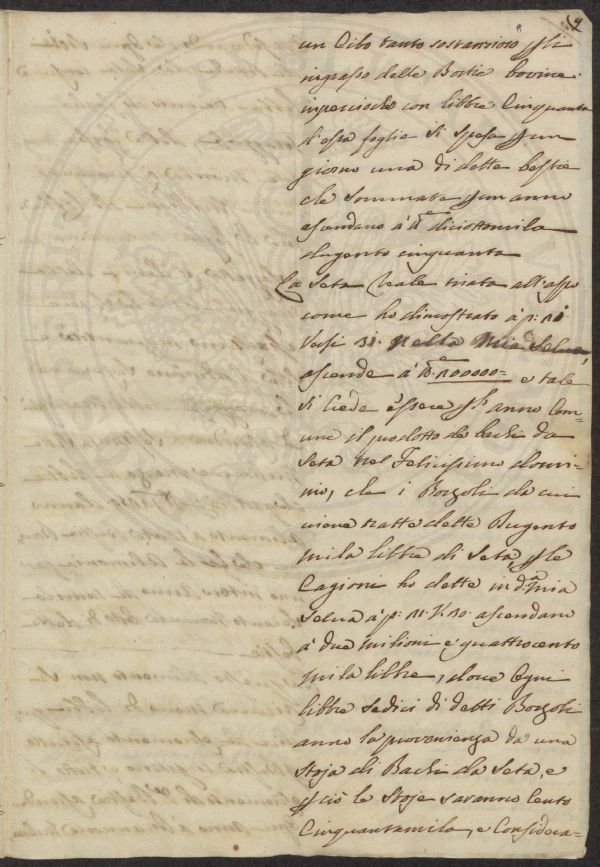 9
un Cibo tanto sostanzioso p li
ingrasso delle Bestie bovine
imperciochè con libbre Cinquanta
d'essa foglia si spesa p un
giorno una di dette bestie
che sommate p un anno
ascendano à lb.e diciottomila
dugento cinquanta
La Seta Reale tirata all'aspo
come ho dimostrato à p: 
Versi nella mia Selva,
ascende à lb.e 200000= e tale
si Crede essere p l'anno Com=
une il prodotto de bachi da
Seta nel Felicissimo domi=
nio, che i Bozzoli da cui
viene tratte dette Dugento
mila libbre di Seta, p le
Cagioni ho dette in d.a mia
Selva à p: ascendano
à due milioni e quattrocento
mila libbre, dove Ogni
libbre Sedici di detti Bozzoli
anno la provenienza da una
Stoja di Bachi da Seta, e
p ciò le Stoje saranno Cento
Cinquantamila, e Considera=